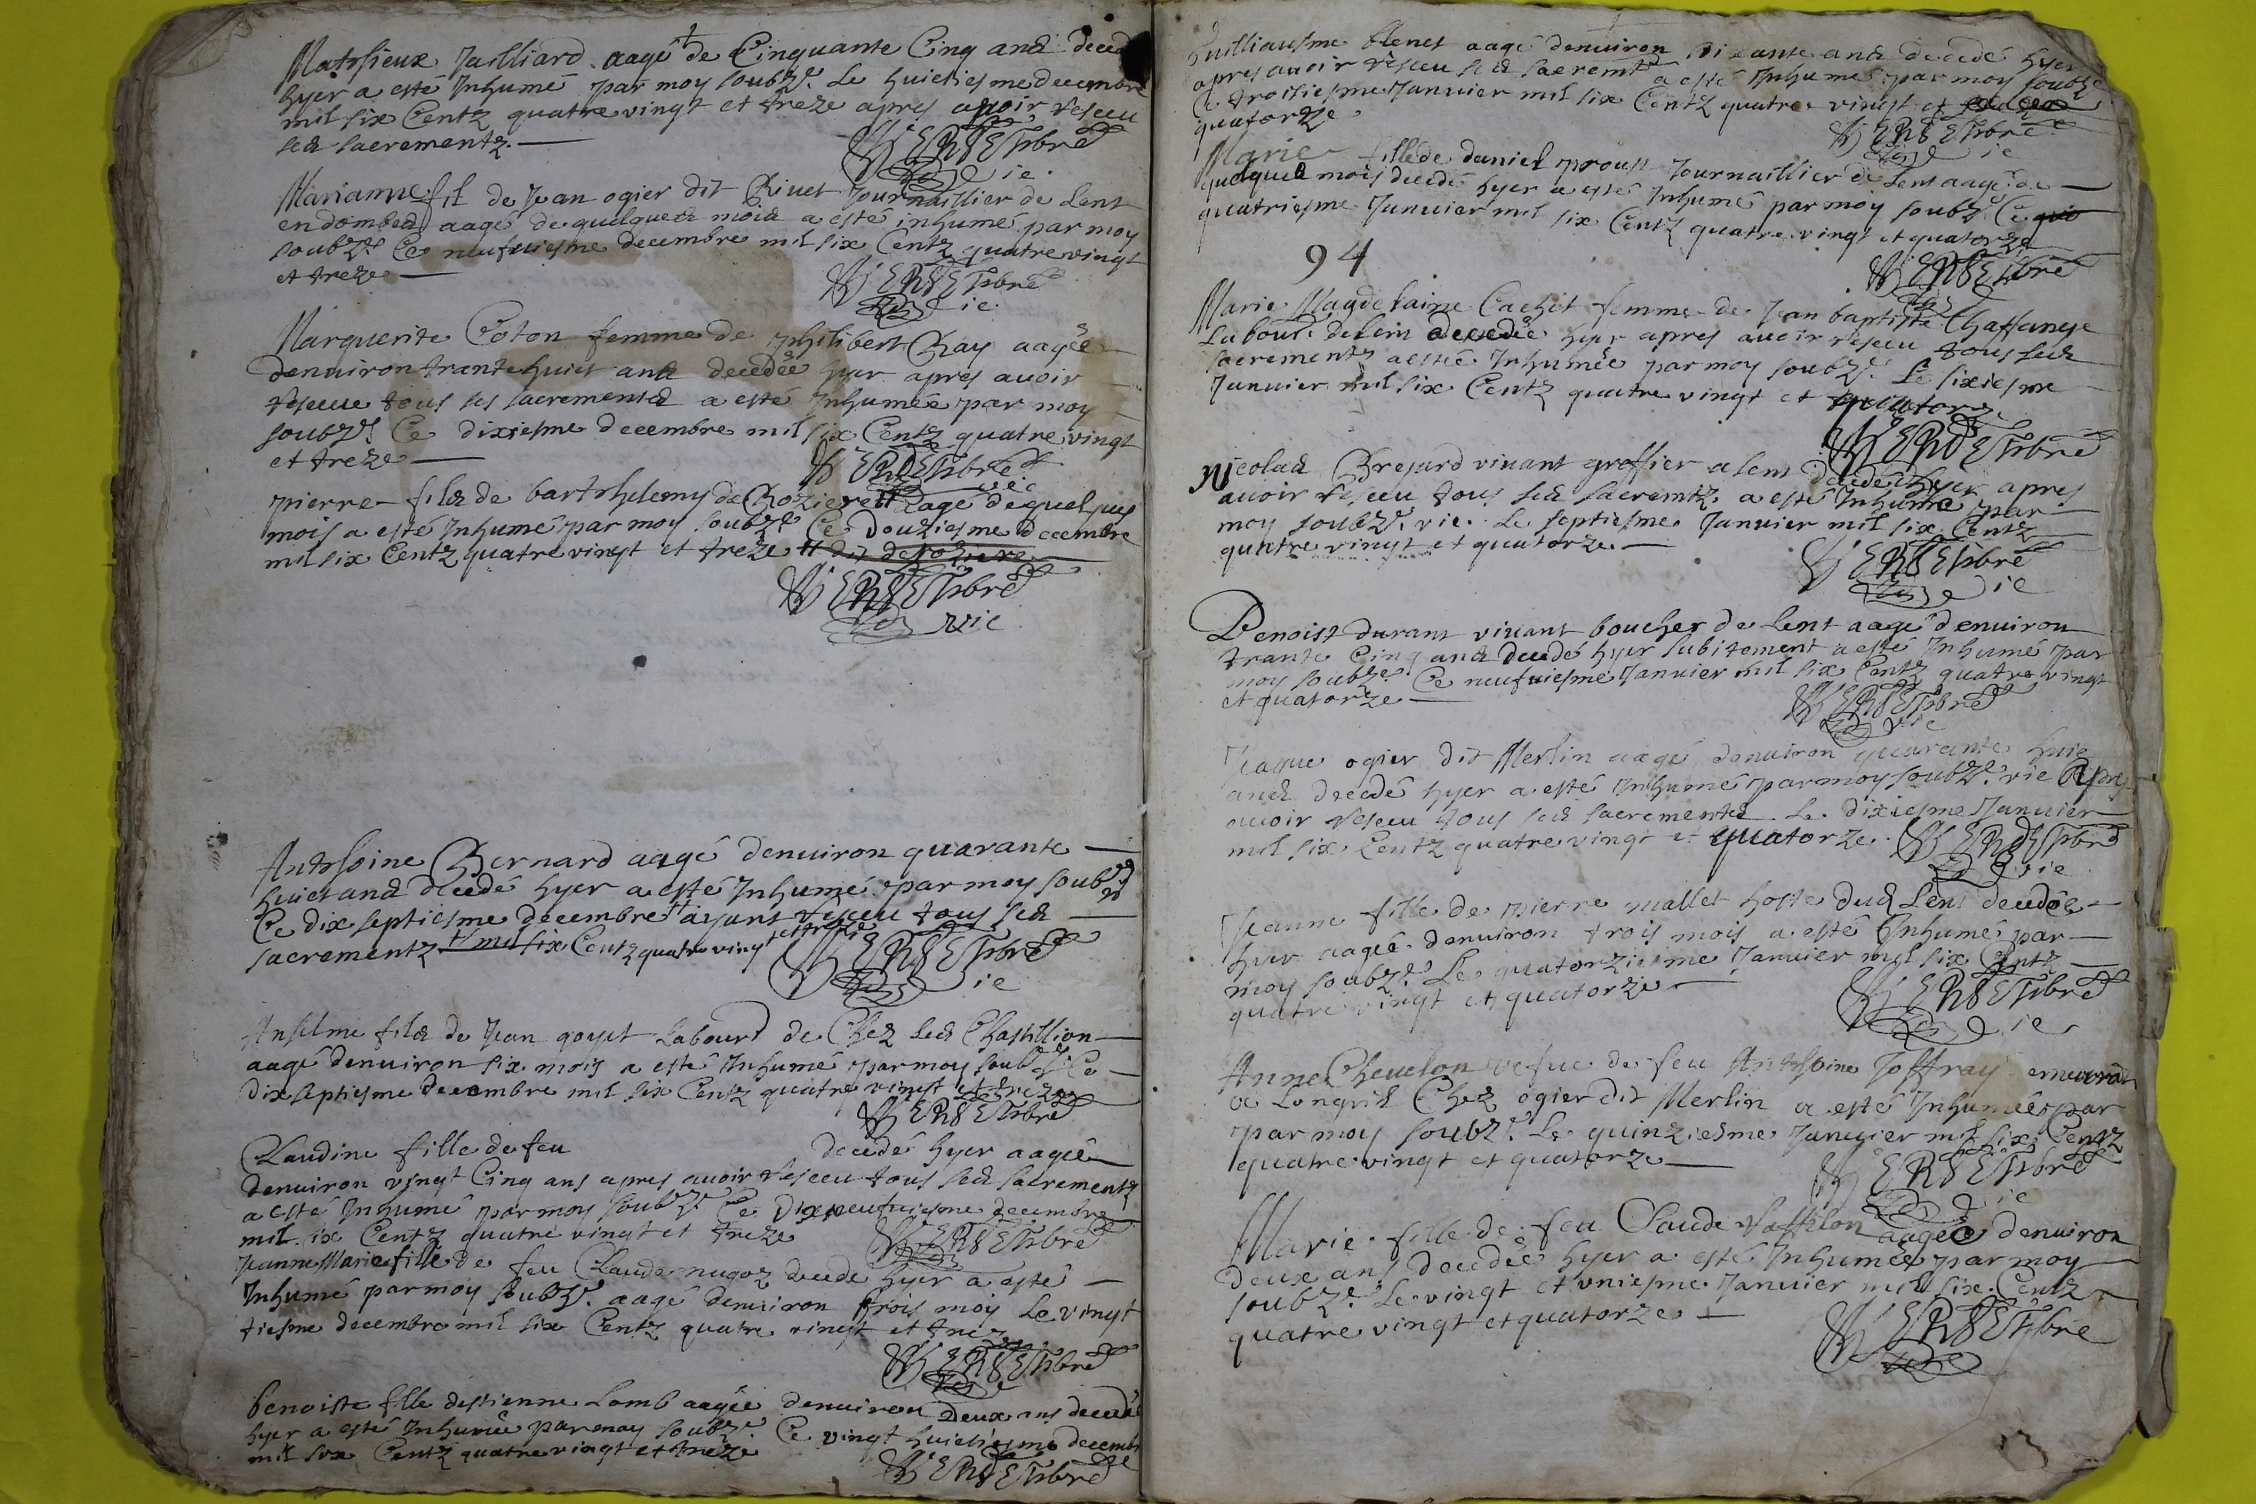 Mathieux Jailliard aagé de Cinquante Cinq ans deced
hyer a esté Inhumé par moy soubz.é Le huictiesme decembre
mil six Centz quatre vingt et treze apres avoir reseeu
ses sacrementz.
Marianne fil de Jean ogier dit Rivet Journaillier de Lent
en dombes aagé de quelques mois a esté inhumé par moy
soubz.é Ce neufuiesme decembre mil six Centz quatre vingt
et treze
Marguerite Coton femme de philibert Ray aagée
denuiron trante huict ans decedée hyer apres auoir
reseeu tous ses sacrements a esté Inhumée par moy
soubz.é Ce dixiesme decembre mil six Centz quatre vingt
et treze
pierre fils de barthelemy de Roziere aagé de quelques
mois a esté Inhumé par moy soubz.é Ce Douziesme decembre
mil six Centz quatre vingt et treze
vie
Anthoine Bernard aagé denuiron quarante
huict ans decedé hyer a esté Inhumé par moy soubz.é
Ce dix septiesme decembre ayant reseeu tous ses
sacrementz mil six Centz quatre vingt et treze
Anselme fils de Jean goyet Labour.r de Chez Les Chastillion
aagé denuiron six mois a esté Inhumé par moy soubz.é Ce
dix septiesme decembre mil six Centz quatre vingt et treze
Claudine fille de feu decedé hyer aagée
denuiron vingt Cinq ans apres auoir reseeu tous ses sacrementz
a esté Inhumé par moy soubz.é Ce dixneufuiesme decembre
mil six Centz quatre vingt et treze
Jeanne Marie fille de feu Claude nugoz decede hyer a esté
Inhumé par moy soubz.é aagé denuiron trois moy Le vingt
tiesme decembre mil six Centz quatre vingt et treze
benoiste fille destienne Lomb aagée denuiron Deux ans decedé
hyer a esté Inhumée par moy soubz.é Ce vingt huictiesme decemb
mil six Centz quatre vingt et treze
Guilliausme blenet aagé denuiron soixante ans decedé hyer
apres auoir reseeu ses sacremtz a esté Inhumé par moy soubz.é
Le troisiesme Januier mil six Centz quatre vingt et
quatorze
Marie fille de daniel proust Journaillier de Lent aagé de
quelque mois decedé hyer a esté Inhumé par moy soubz.é Ce
quatriesme Januier mil six Centz quatre vingt et quatorze
94
Marie Magdelaine Cachot femme de Jean baptiste Chaffange
Labour.r decedée hyer apres auoir reseeu tous ses
sacrementz a esté Inhumée par moy soubz.é Le sixiesme
Januier mil six Centz quatre vingt et quatorze
Nicolas Bregard viuant greffier a Lent decedé hyer apres
auoir reseeu tous ses sacremtz a esté Inhumé par
moy soubz.é vic. Le septiesme Januier mil six Centz
quatre vingt et quatorze
Benoist durant viuant boucher de Lent aagé denuiron
trante Cinq ans decedé hyer subitement a esté Inhumé par
moy soubz.é Ce neufuiesme Januier mil six Centz quatre vingt
et quatorze
Jaque ogier dit Merlin aagé denuiron quarante huic
ans decedé hyer a esté Inhumé par moy soubz.é vic Apres
auoir reseeu tous ses sacrements Le dixiesme Januier
mil six Centz quatre vingt et quatorze
Jeanne fille de pierre mallet hoste dud Lent decedée
hyer aagée denuiron trois mois a esté Inhumé par
moy soubz.é Le quatorziesme Januier mil six Centz
quatre vingt et quatorze
Anne Cheuelon vefue de feu Anthoine Joffray
a Longris Chez ogier dit Merlin a esté Inhumée par
par moy soubz.é Le quinziesme Januier mil six Centz
quatre vingt et quatorze
Marie fille de feu Claude Vaffilon aagée denuiron
deux ans decedée hyer a esté Inhumée par moy
soubz.é Le vingt et vniesme Januier mil six Centz
quatre vingt et quatorze